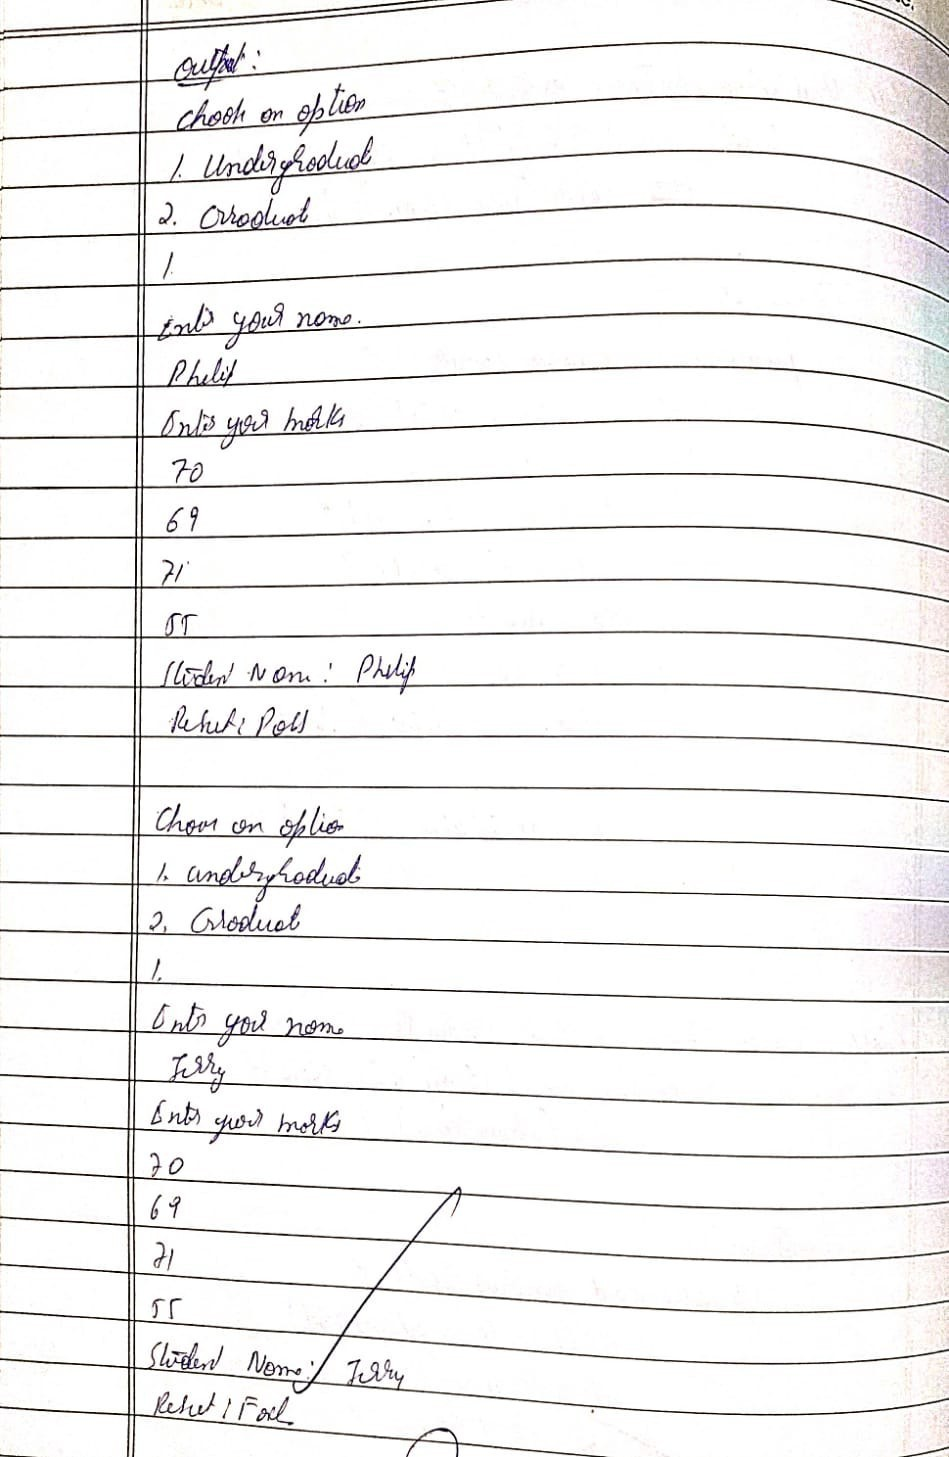 Output:
Choose an option
1. Undergraduate
2. Graduate
1.
Enter your name.
Philip
Enter your marks
70
69
71
55
Student Name: Philip
Result: Pass
Choose an option
1. undergraduate
2. Graduate
1.
Enter your name
Jerry
Enter your marks
70
69
71
55
Student Name: Jerry
Result: Fail